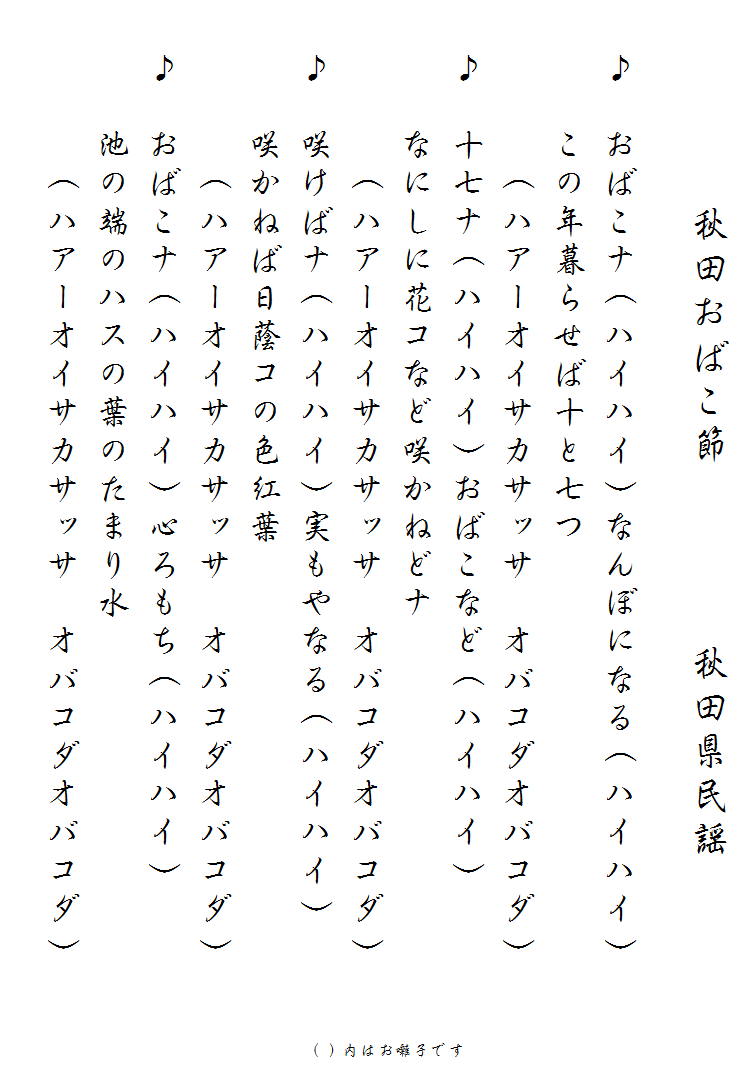 秋田おばこ節　秋田県民謡
♪　おばこナ（ハイハイ）なんぼになる（ハイハイ）
この年暮らせば十と七つ
（ハアーオイサカサッサ　オバコダオバコダ）
♪　十七ナ（ハイハイ）おばこなど（ハイハイ）
なにしに花コなど咲かねどナ
（ハアーオイサカサッサ　オバコダオバコダ）
♪　咲けばナ（ハイハイ）実もやなる（ハイハイ）
咲かねば日蔭コの色紅葉
（ハアーオイサカサッサ　オバコダオバコダ）
♪　おばこナ（ハイハイ）心ろもち（ハイハイ）
池の端のハスの葉のたまり水
（ハアーオイサカサッサ　オバコダオバコダ）
（ ）内はお囃子です